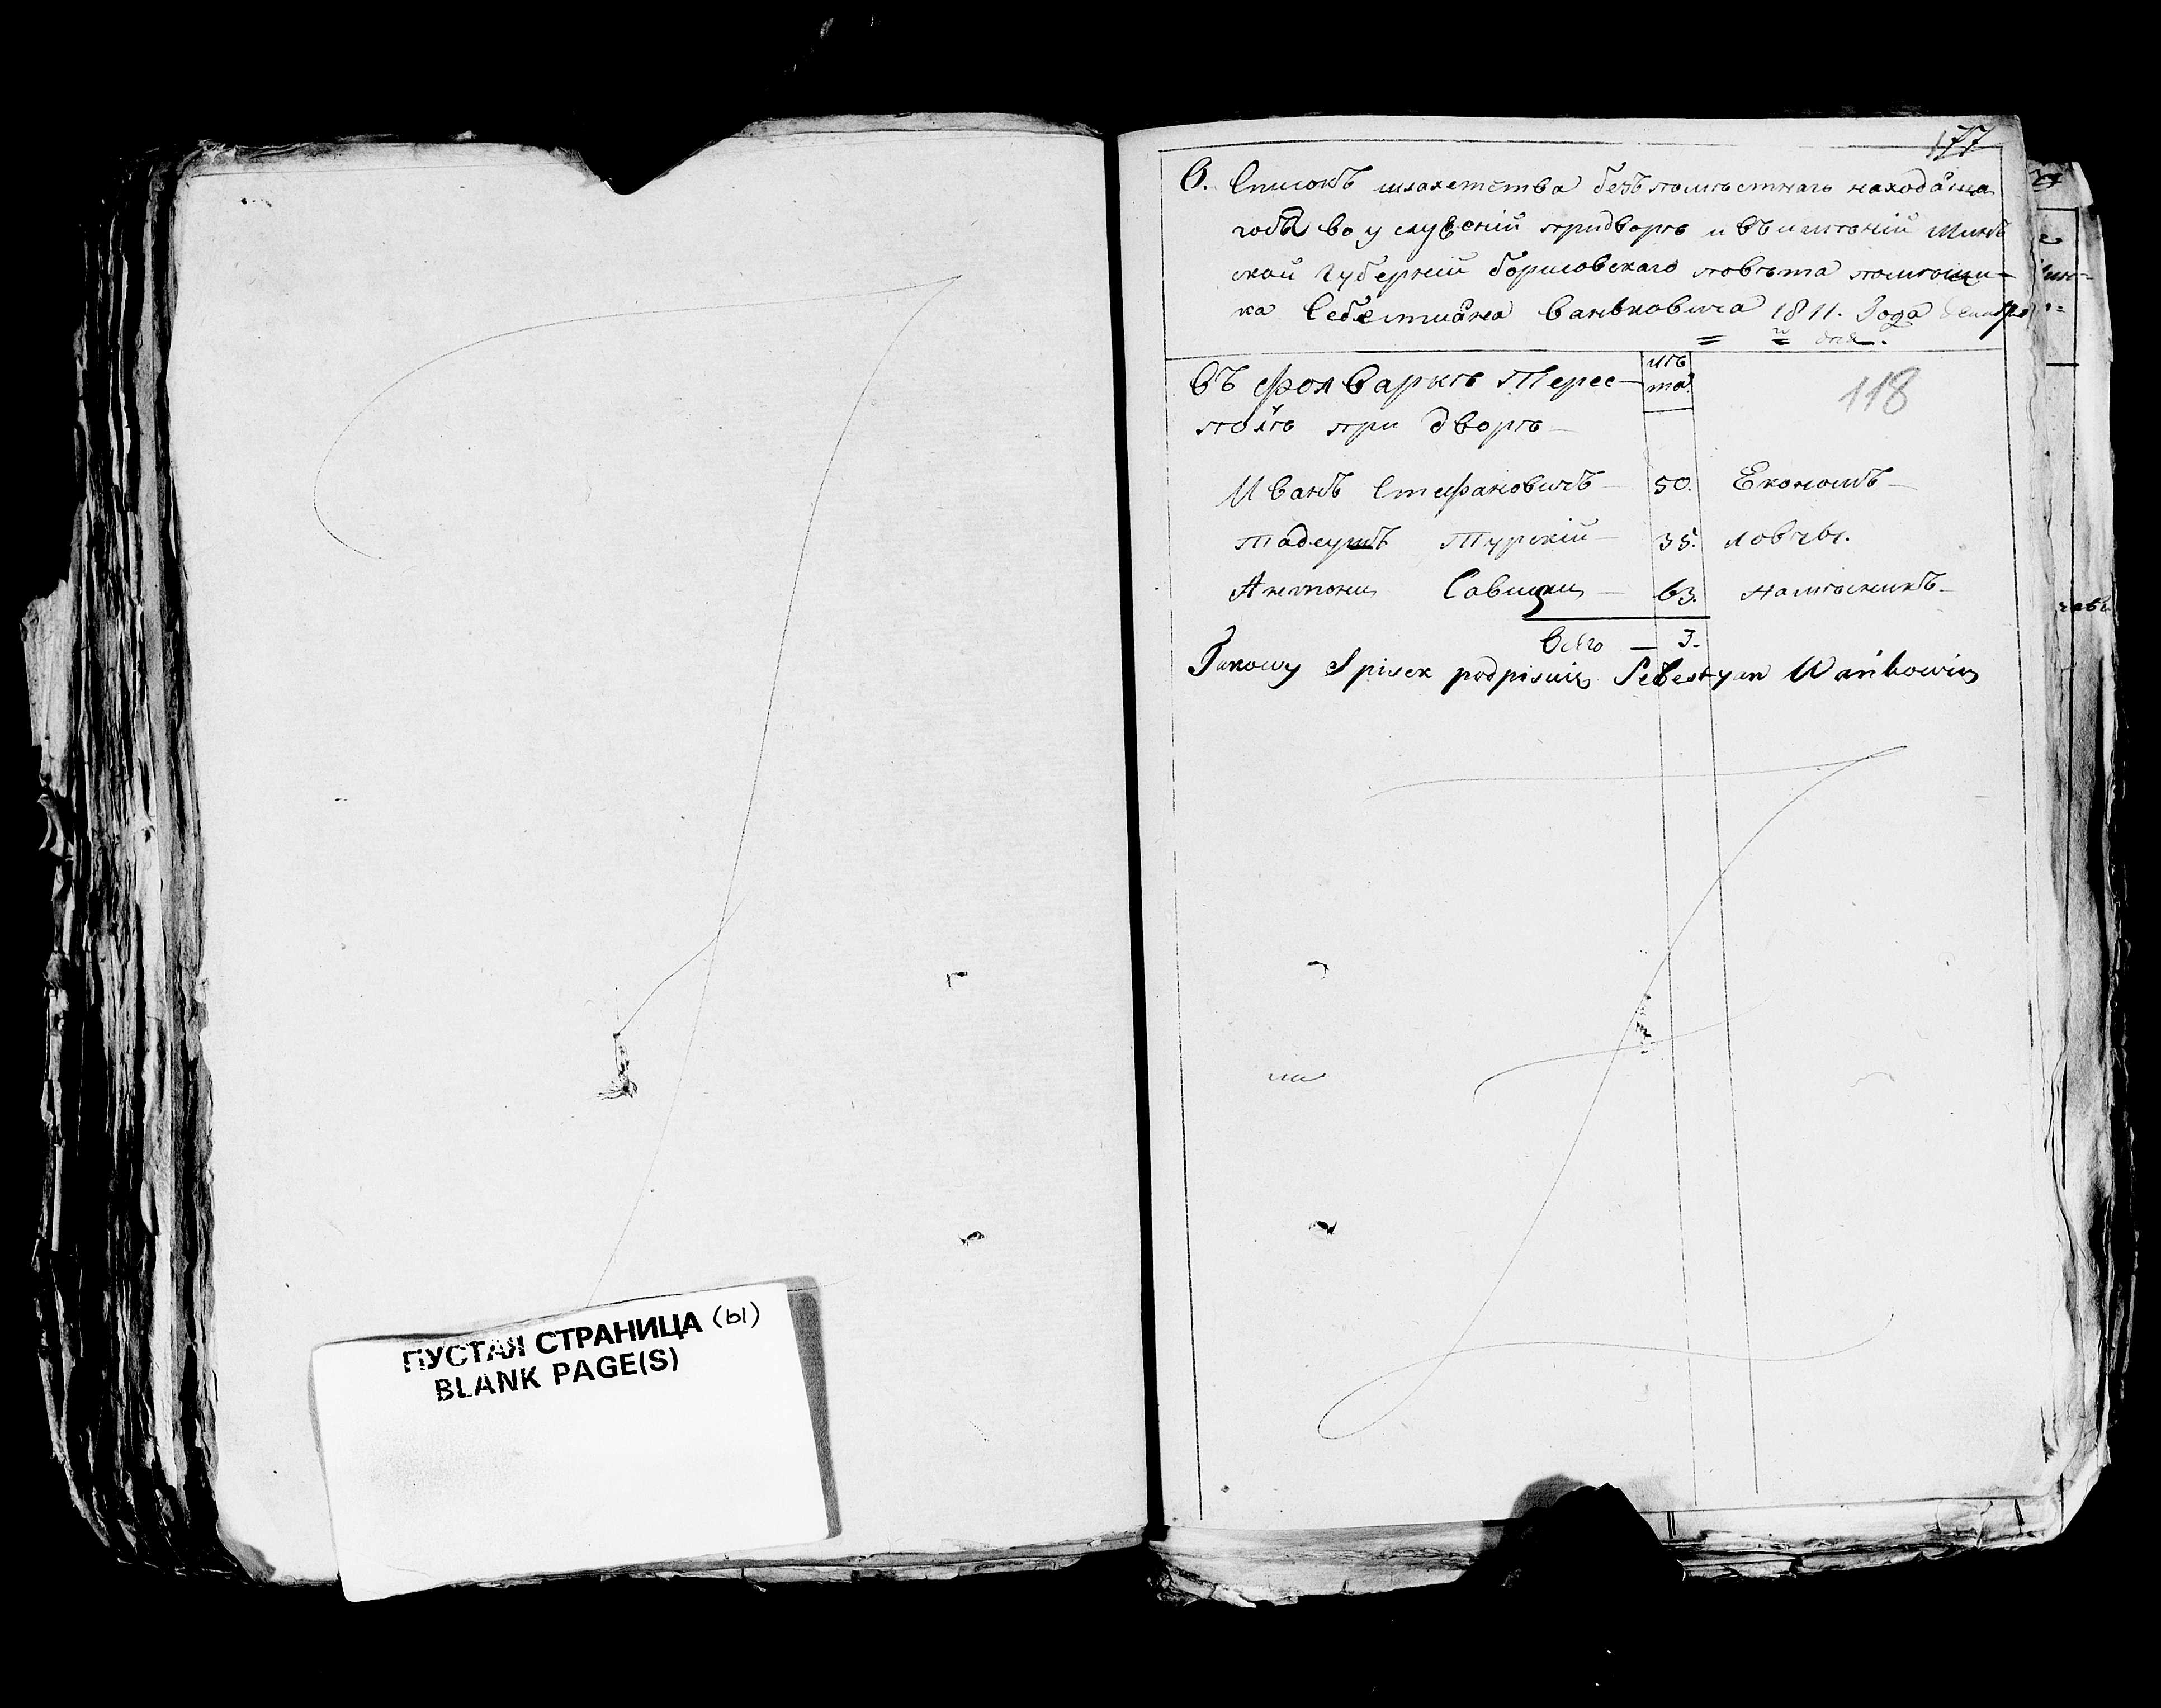 ПУСТАЯ СТРАНИЦА (ы)
BLANK PAGE(S)
177
6. Списокъ шляхетства безъпомѣстнаго находяща
гося во услуженіи придворѣ и въ имѣніи Минъ
ской Губерніи Борисовскаго повѣта помѣщи-
ка Себестиана Ваньковича 1811. Года декабря
дня.
въ фолваркѣ Перес-
полѣ при дворѣ
лѣ
та
118
Иванъ Стефановичъ — 50. Економъ —
Тадеушъ Турскій — 35. ловчы.
Антони Савицки — 63. Намѣсникъ —
Всего — 3.
Takowy Spisek podpisuię Sebestyan Wańkowicz